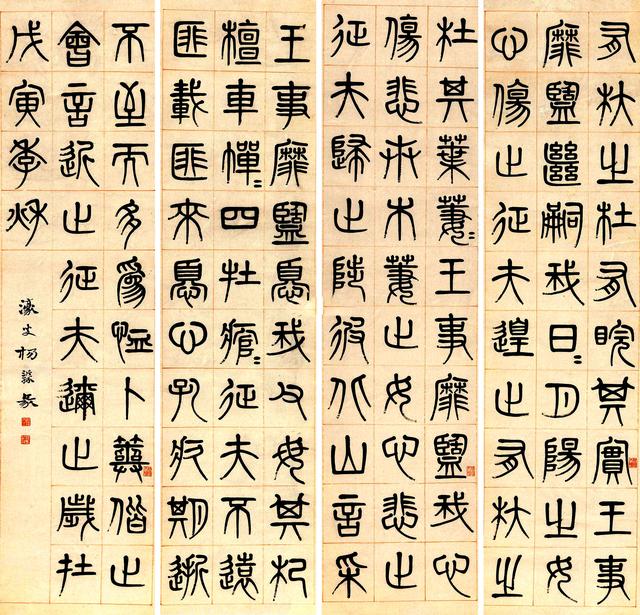 有杕之杜有睆其實王事
靡盬繼嗣我日〻月陽止女
心傷止征夫遑止有杕之
杜其葉萋〻王事靡盬我心
傷悲卉木萋止女心悲止
征夫歸止陟彼北山言采
王事靡盬憂我父母其杞
檀車幝〻四牡痯〻征夫不遠
匪載匪來憂心孔疚期逝
不至而多為恤卜筮偕止
會言近止征夫邇止歲在
戊寅季秋
濠叟楊沂孫